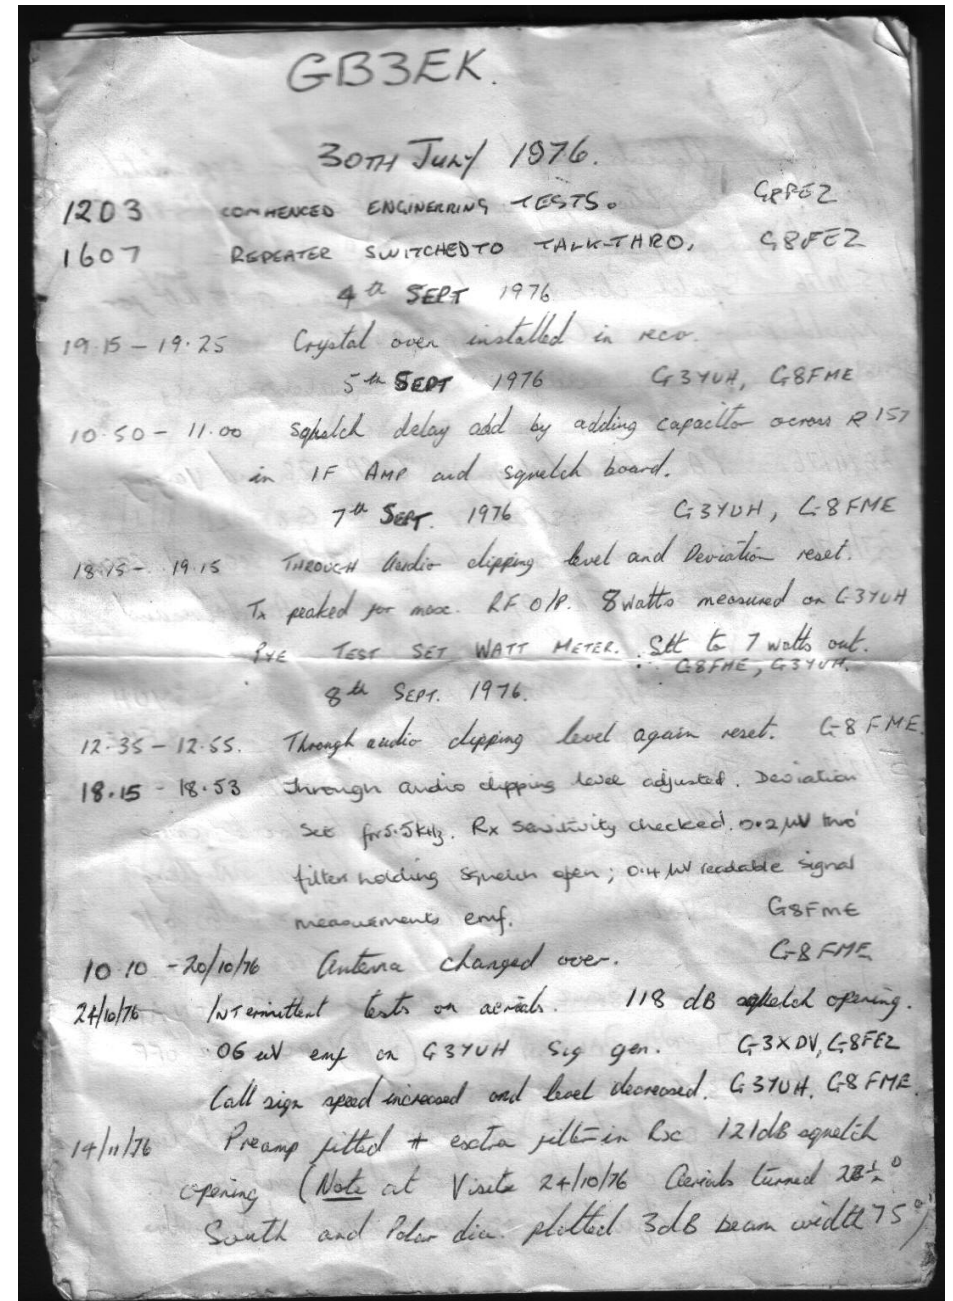 GB3EK.
30TH JULY 1976.
1203 COMMENCED ENGINERRING TESTS. G8FEZ
1607 REPEATER SWITCHED TO TALK-THRO. G8FEZ
4th SEPT 1976
19.15 - 19.25 Crystal oven installed in recv.
5th SEPT 1976 G3YUH, G8FME
10.50 - 11.00 Squelch delay add by adding capacitor across R157
in IF AMP and squelch board.
7th SEPT. 1976 G3YUH, G8FME
18.15 - 19.15 THROUGH Audio clipping level and Deviation reset.
Tx peaked for max. RF O/P. 8 watts measured on G3YUH
PYE TEST SET WATT METER. Set to 7 watts out.
G8FME, G3YUH.
8th SEPT. 1976.
12.35 - 12.55. Through audio clipping level again reset. G8FME.
18.15 - 18.53 Through audio clipping level adjusted. Deviation
set for 5.5kHz. Rx sensitivity checked. 0.2µV thro'
filter holding squelch open; 0.4µV readable signal
measurements emf. G8FME
10.10 - 20/10/76 Antenna changed over. G8FME
24/10/76 INTermittent tests on aerials. 118 dB squelch opening.
06 uV emf on G3YUH Sig gen. G3XDV, G8FEZ
Call sign speed increased and level decreased. G3YUH, G8FME.
14/11/76 Preamp fitted + extra filter in 121dB squelch
opening (Note at Visit 24/10/76 Aerials turned
South and Polar dia. plotted 3dB beam width 75°)